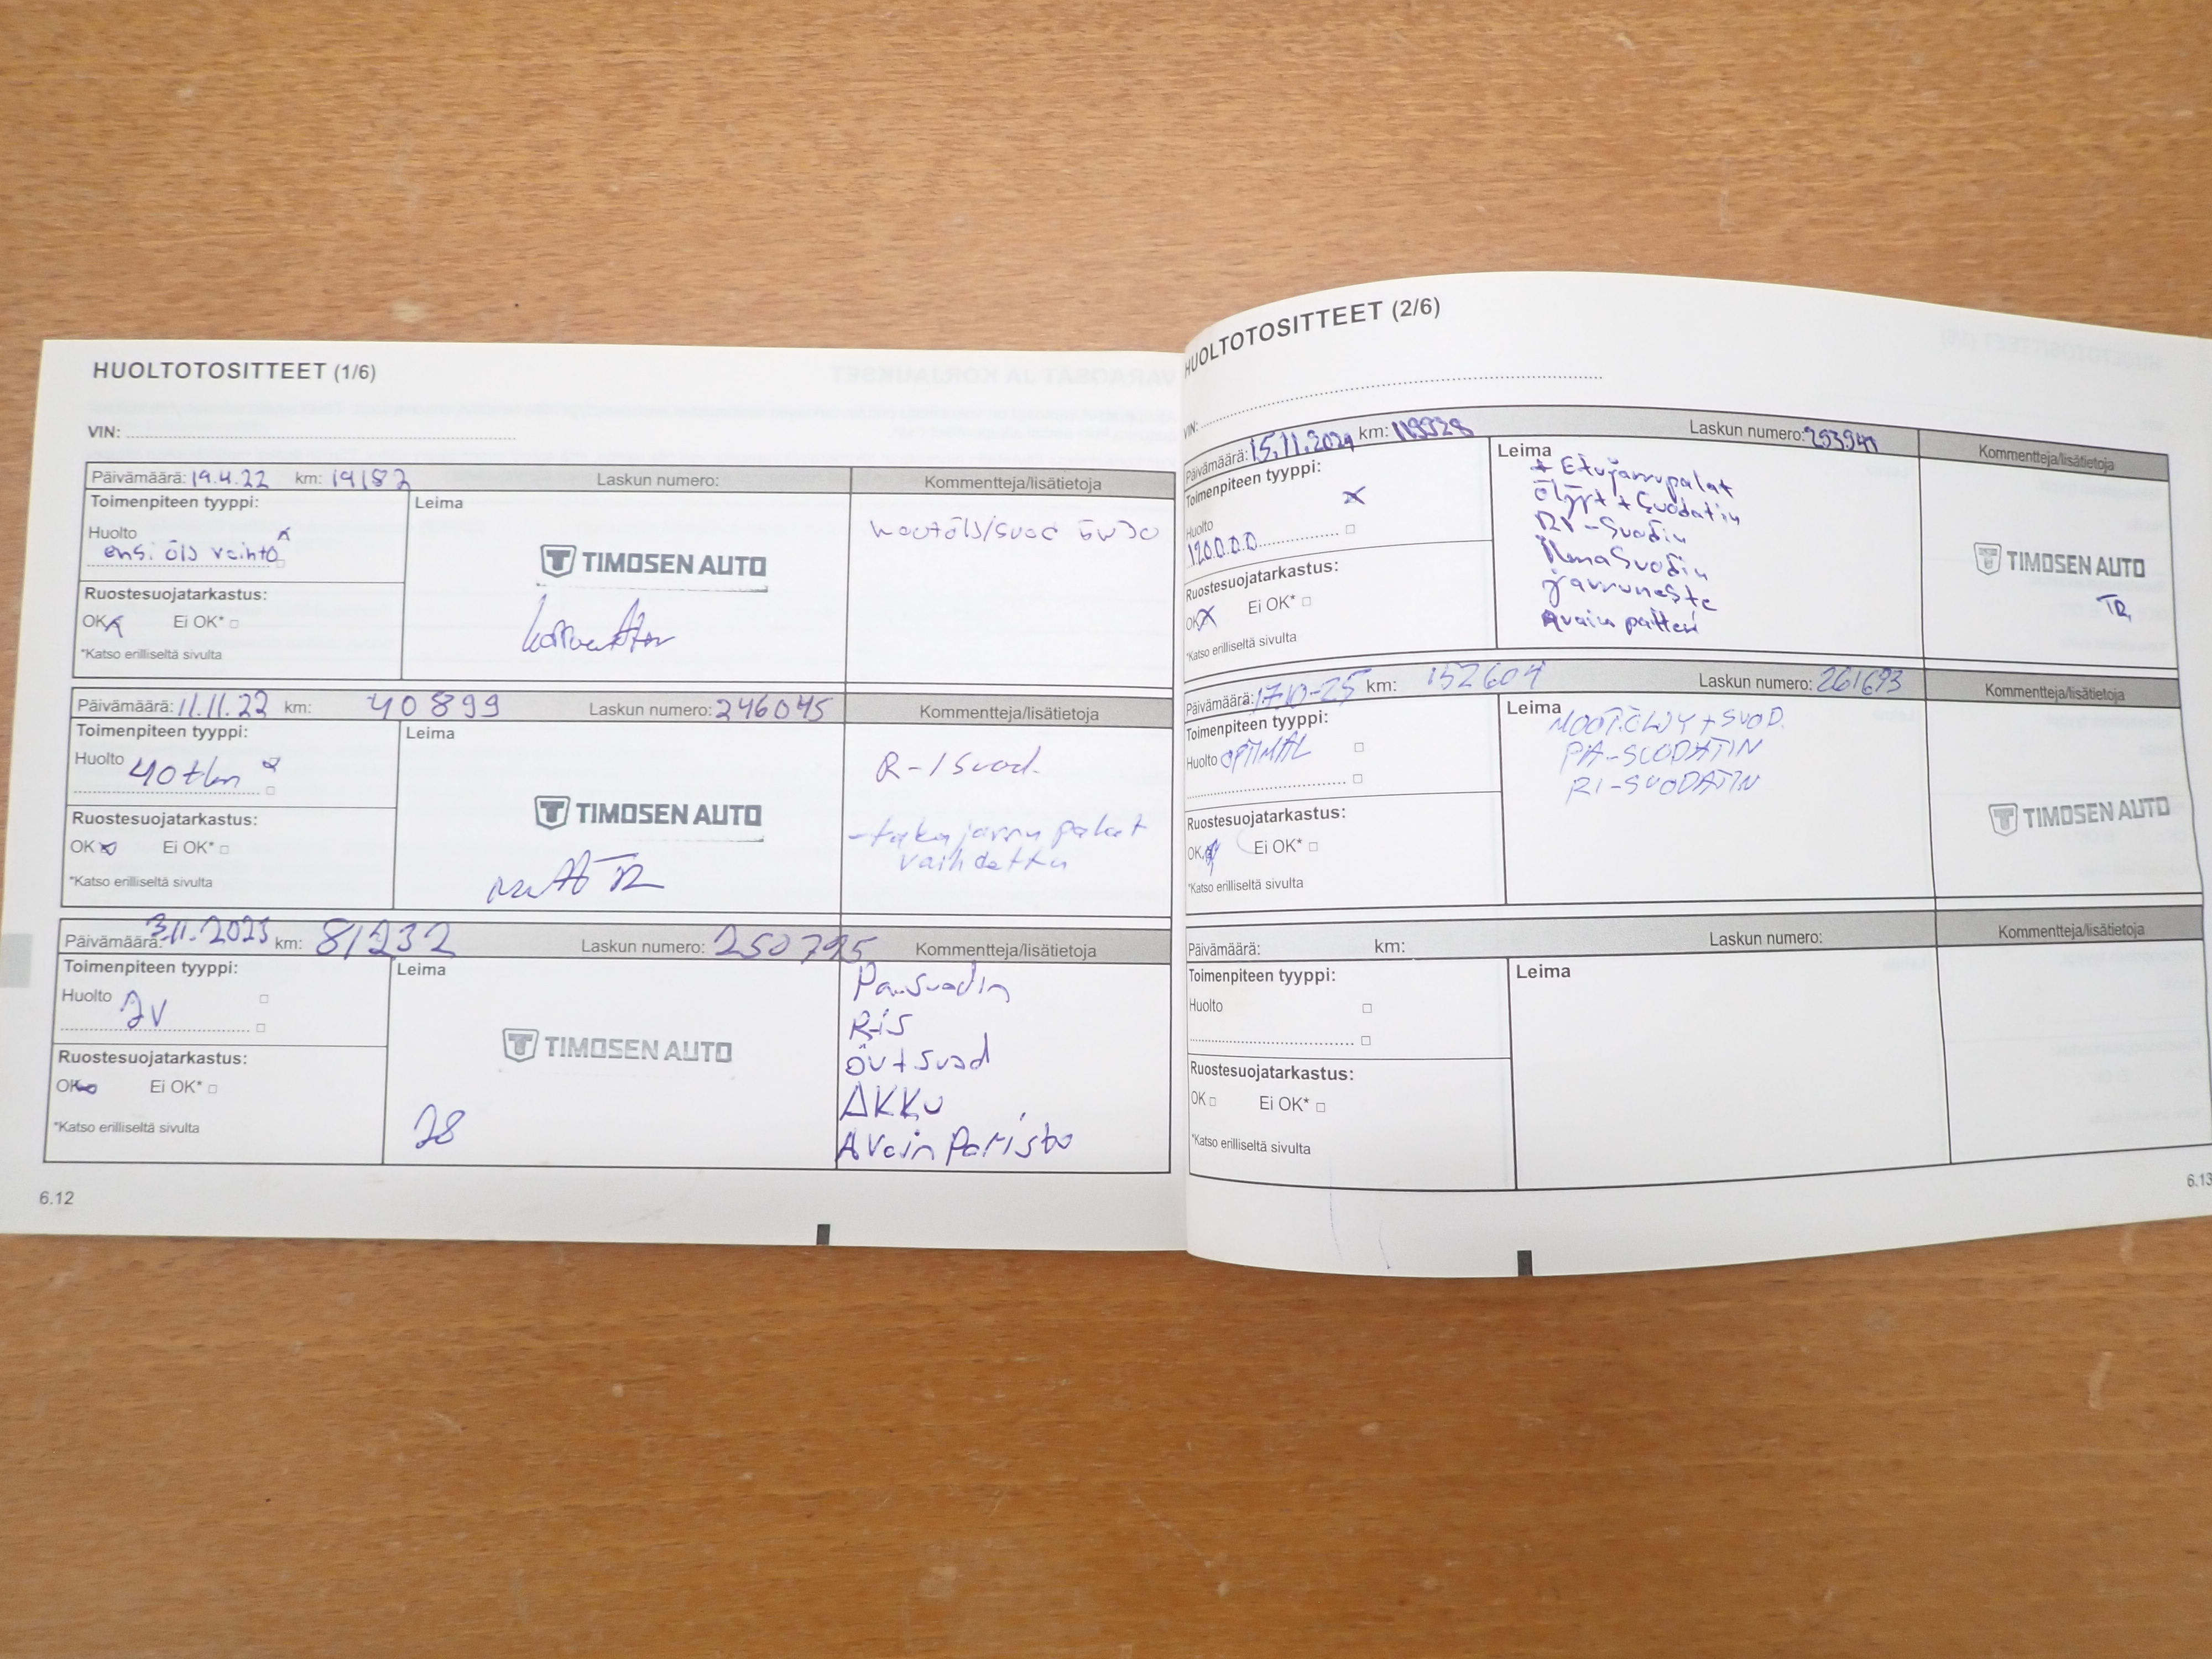 HUOLTOTOSITTEET (1/6)
VIN:
Päivämäärä: 19.4.22 km: 19182 Laskun numero: Kommentteja/lisätietoja
Toimenpiteen tyyppi: Leima
Huolto x
ensi öljy vaihto
TIMOSEN AUTO
Ruostesuojatarkastus:
OK x Ei OK*
*Katso erilliseltä sivulta
Päivämäärä: 11.11.22 km: 40899 Laskun numero: 246045 Kommentteja/lisätietoja
Toimenpiteen tyyppi: Leima
Huolto 40tkm x
R-/suod.
TIMOSEN AUTO
- takajarru palat
vaihdettu
Ruostesuojatarkastus:
OK x Ei OK*
*Katso erilliseltä sivulta
Päivämäärä: 3.11.2023 km: 81232 Laskun numero: 250795 Kommentteja/lisätietoja
Toimenpiteen tyyppi: Leima
Huolto 2V
Pa-suodin
R-is
öv+suod
AKKU
Avain Paristo
TIMOSEN AUTO
28
Ruostesuojatarkastus:
OK Ei OK*
*Katso erilliseltä sivulta
6.12
HUOLTOTOSITTEET (2/6)
VIN:
Päivämäärä: 15.11.2024 km: 119928 Laskun numero: 253941 Kommentteja/lisätietoja
Toimenpiteen tyyppi: Leima
Huolto x
120.0.0.0
+ Etujarrupalat
Öljyt + Suodatin
-Suodin
Ilmasuodin
jarruneste
Avain patteri
TIMOSEN AUTO
TR
Ruostesuojatarkastus:
OK x Ei OK*
*Katso erilliseltä sivulta
Päivämäärä: 17-10-25 km: 152604 Laskun numero: 261693 Kommentteja/lisätietoja
Toimenpiteen tyyppi: Leima
Huolto OPTIMAL
MOOT.ÖLJY + SUOD.
PA-SUODATIN
RI-SUODATIN
TIMOSEN AUTO
Ruostesuojatarkastus:
OK Ei OK*
*Katso erilliseltä sivulta
Päivämäärä: km: Laskun numero: Kommentteja/lisätietoja
Toimenpiteen tyyppi: Leima
Huolto
Ruostesuojatarkastus:
OK Ei OK*
*Katso erilliseltä sivulta
6.13